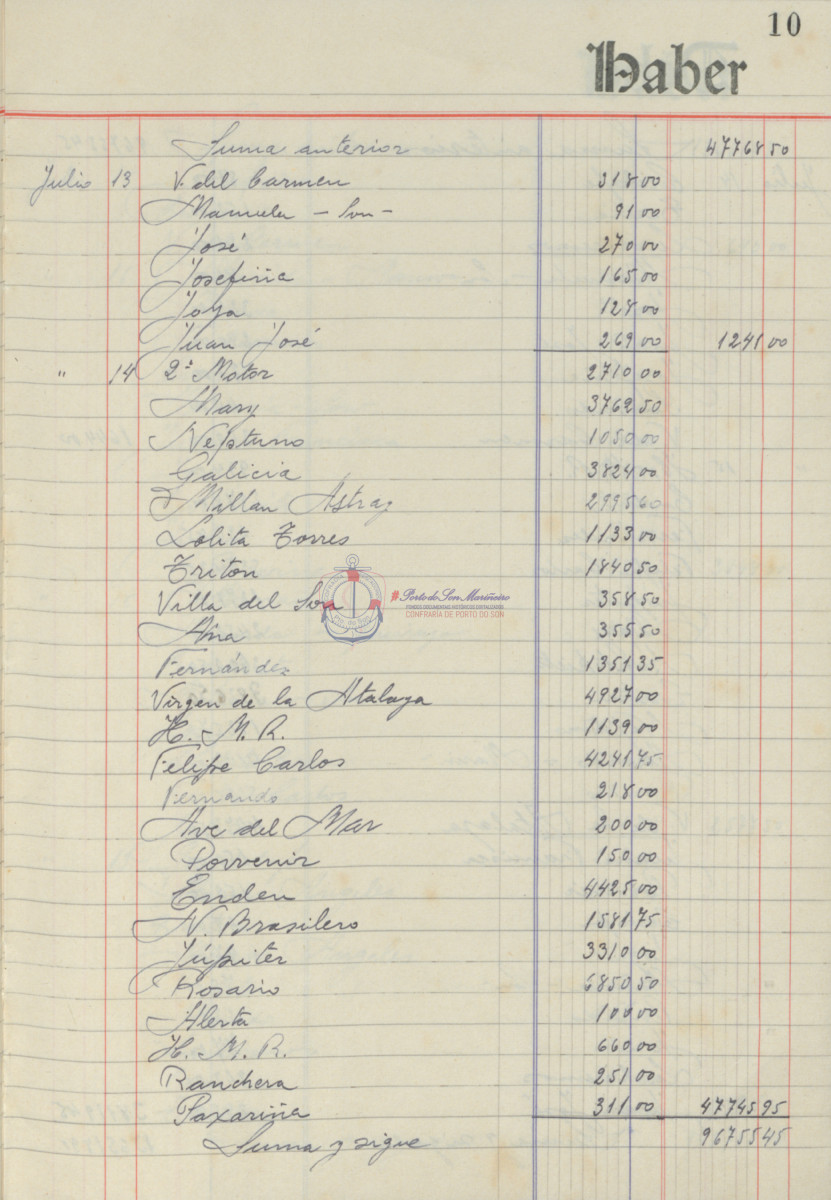 10
Haber
Suma anterior 47768 50
Julio 13 V. del Carmen 318 00
Manuela - Son - 91 00
José 270 00
Josefiña 165 00
Joya 128 00
Juan José 269 00 1241 00
" 14 2º Motor 2710 00
Mary 3769 50
Neptuno 1050 00
Galicia 3824 00
Millan Astray 2995 60
Lolita Torres 1133 00
Triton 1840 50
Villa del Son 358 50
#Porto do Son Mariñeiro
FONDOS DOCUMENTAIS HISTÓRICOS DIXITALIZADOS
CONFRARÍA DE PORTO DO SON
Aña 355 50
Fernández 1351 35
Virgen de la Atalaya 4927 00
H. M. R. 1139 00
Felipe Carlos 4241 75
Fernando 218 00
Ave del Mar 200 00
Porvenir 150 00
Enden 4425 00
N. Brasilero 1581 75
Júpiter 3310 00
Rosario 6850 50
Alerta 100 00
H. M. R. 660 00
Ranchera 251 00
Paxariña 311 00 47745 95
Suma y sigue 96755 45